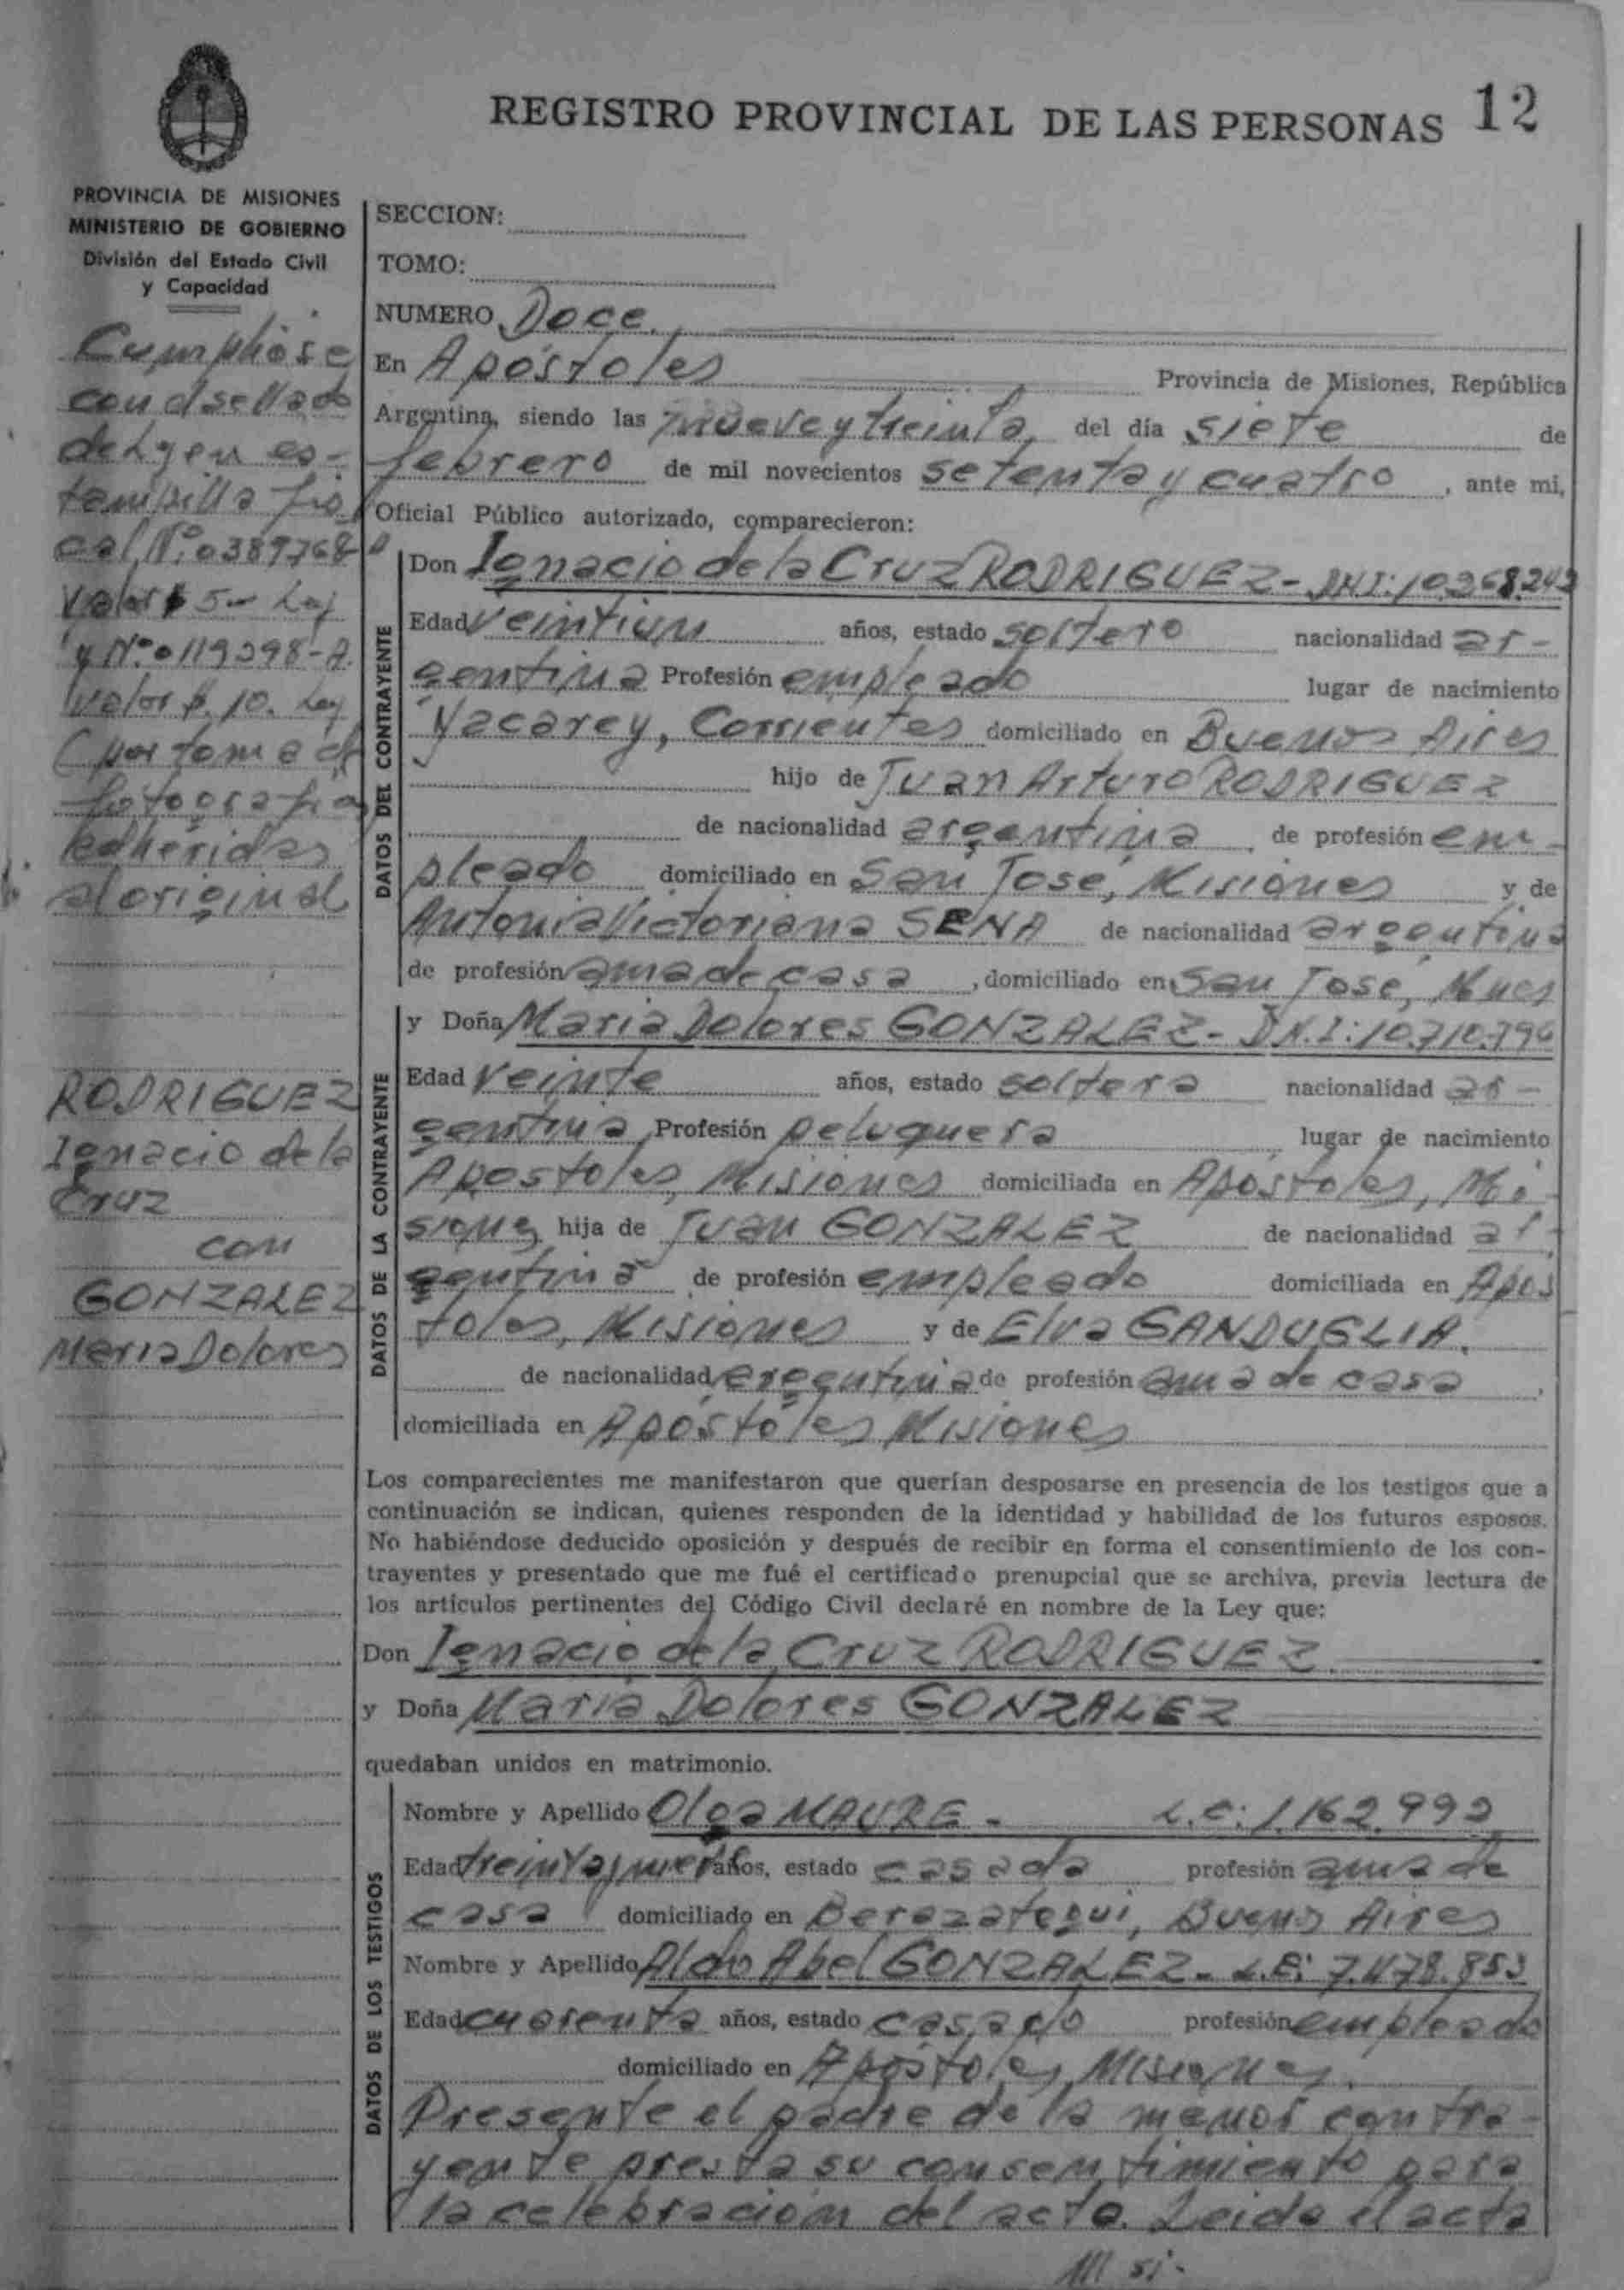 REGISTRO PROVINCIAL DE LAS PERSONAS 12
PROVINCIA DE MISIONES
MINISTERIO DE GOBIERNO
División del Estado Civil
y Capacidad
Cumplióse
con el sellado
de Ley en es-
tampilla fis
cal, Nº 0389768
Valor $ 5- Ley
y Nº 0119298-A.
Valor $. 10. Ley
(por toma de
fotografía
adheridas
al original
RODRIGUEZ
Ignacio de la
Cruz
con
GONZALEZ
Maria Dolores
SECCION:
TOMO:
NUMERO Doce.
En Apóstoles Provincia de Misiones, República
Argentina, siendo las nueve y treinta, del día siete de
febrero de mil novecientos setenta y cuatro, ante mi,
Oficial Público autorizado, comparecieron:
DATOS DEL CONTRAYENTE
Don Ignacio de la Cruz RODRIGUEZ- DNI: 10.268.243
Edad veintiun años, estado soltero nacionalidad ar-
gentina Profesión empleado lugar de nacimiento
Yacarey, Corrientes domiciliado en Buenos Aires
hijo de Juan Arturo RODRIGUEZ
de nacionalidad argentina, de profesión em-
pleado domiciliado en San José, Misiones y de
Antonia Victoriana SENA de nacionalidad argentina
de profesión ama de casa, domiciliado en San José, Mnes
DATOS DE LA CONTRAYENTE
y Doña Maria Dolores GONZALEZ- D.N.I: 10.710.796
Edad veinte años, estado soltera nacionalidad ar-
gentina Profesión peluquera lugar de nacimiento
Apostoles, Misiones domiciliada en Apóstoles, Mi-
siones hija de Juan GONZALEZ de nacionalidad ar-
gentina de profesión empleado domiciliada en Após
toles, Misiones y de Elva GANDUGLIA.
de nacionalidad argentina de profesión ama de casa,
domiciliada en Apóstoles Misiones
Los comparecientes me manifestaron que querían desposarse en presencia de los testigos que a
continuación se indican, quienes responden de la identidad y habilidad de los futuros esposos.
No habiéndose deducido oposición y después de recibir en forma el consentimiento de los con-
trayentes y presentado que me fué el certificado prenupcial que se archiva, previa lectura de
los artículos pertinentes del Código Civil declaré en nombre de la Ley que:
Don Ignacio de la Cruz RODRIGUEZ
y Doña Maria Dolores GONZALEZ
quedaban unidos en matrimonio.
DATOS DE LOS TESTIGOS
Nombre y Apellido Olga MAURE- L.C: 1.162.992
Edad treinta y nueve años, estado casada profesión ama de
casa domiciliado en Berazategui, Buenos Aires
Nombre y Apellido Aldo Abel GONZALEZ- L.E: 7.478.853
Edad cuarenta años, estado casado profesión empleado
domiciliado en Apóstoles, Misiones.
Presente el padre de la menor contra-
yente presta su consentimiento para
la celebración del acto. Leida el acta
/// si-